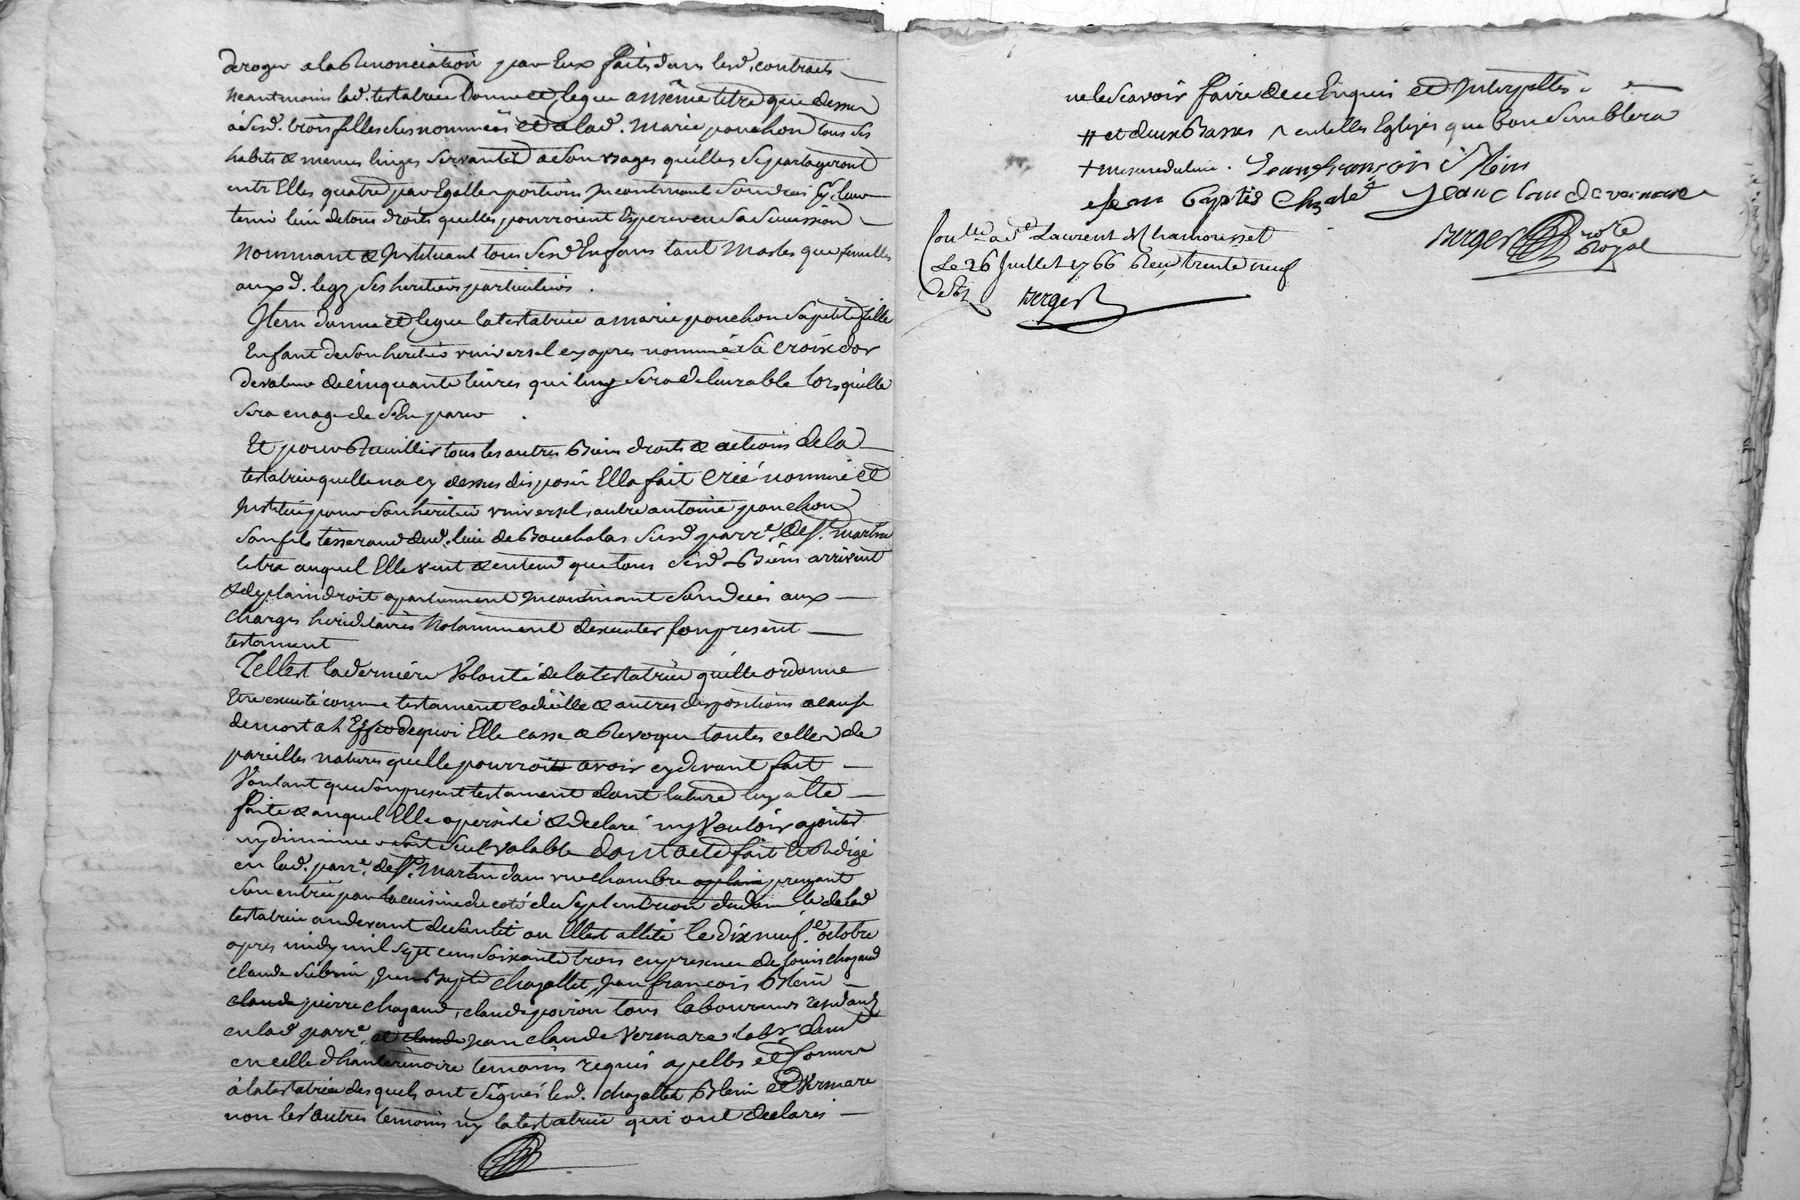 deroger a la Renonciation par Eux faits dans lesd. contracts
neantmoins lad. testatrice Donne et legue a même titre que dessus
à sesd. trois filles susnommées et a lad. Marie ponchon tous ses
habits & menus linges servants a son usages qu'elles se partageront
entr Elles quatre par Egalles portions Incontinant son deces Et leur
tenir lieu de tous droits quelles pourroient Esperer en sa succession
Nommant & Instituant tous sesd. Enfans tant Masles que femelles
auxd. legz ses heritiers particuliers.
Item donne et legue la testatrice a marie ponchon sa petite fille
Enfant de son heritier universel cy apres nommé sa croix d'or
de valeur de cinquante livres qui luy sera delivrable lorsqu'elle
sera en age de s'En parer.
Et pour Recuillir tous les autres Biens droits & actions de la
testatrice quelle na cy dessus disposés Ella fait créé nommé et
Institué pour son heritier universel, autre antoine ponchon
son fils tisserand dud. lieu de Boucholas susd. parr.e de St. martin
letra auquel Elle veut & entend que tous sesd. Biens arrivent
& de plain droit apartiennent Incontinant son deces aux
charges hereditaires Notamment d'executer son present
testament
Telle est la derniere Volonté de la testatrice qu'elle ordonne
Etre executé comme testament codicille & autres dispositions a cause
de mort a l'Effet de quoi Elle casse & Revoque toutes celles de
pareilles natures quelle pourroit avoir cy devant fait
Voulant que son present testament dont lecture luy a été
faite & auquel Elle a persisté & declaré ny Vouloir ajouter
ny diminuer soit seul valable dont acte fait et Redigé
en lad. parr.e de St. Martin dans une chambre prenant
son entrée par la cuisine du coté du Septentrion de lad.
testatrice au devant de son lit ou Elle est allitée le dix neuf.e octobre
apres midy mil sept cens soixante trois en presence de louis chazaud
claude Subrin, Jean Bapte chazallet, Jean francois Blein
claude pierre chazaud, claude poirion tous laboureurs residants
en lad. parr.e et claude jean claude Vermare labr. demt.
en celle d'hanterivoire temoins requis apellés et Connus
à la testatrice desquels ont signés lesd. chazallet Blein et Vermare
non les autres temoins ny la testatrice qui ont declarés
ne le scavoir faire de ce Enquis et Interpellés
# et deux Basses en telles Eglises que bon semblera
Jean francois Blein
Jean Baptiste Chzalet Jean Claude vermare
Berger note Royal
Conlle a St Laurent de Chamousset
Le 26 Juillet 1766 Reçu trente neuf
Berger